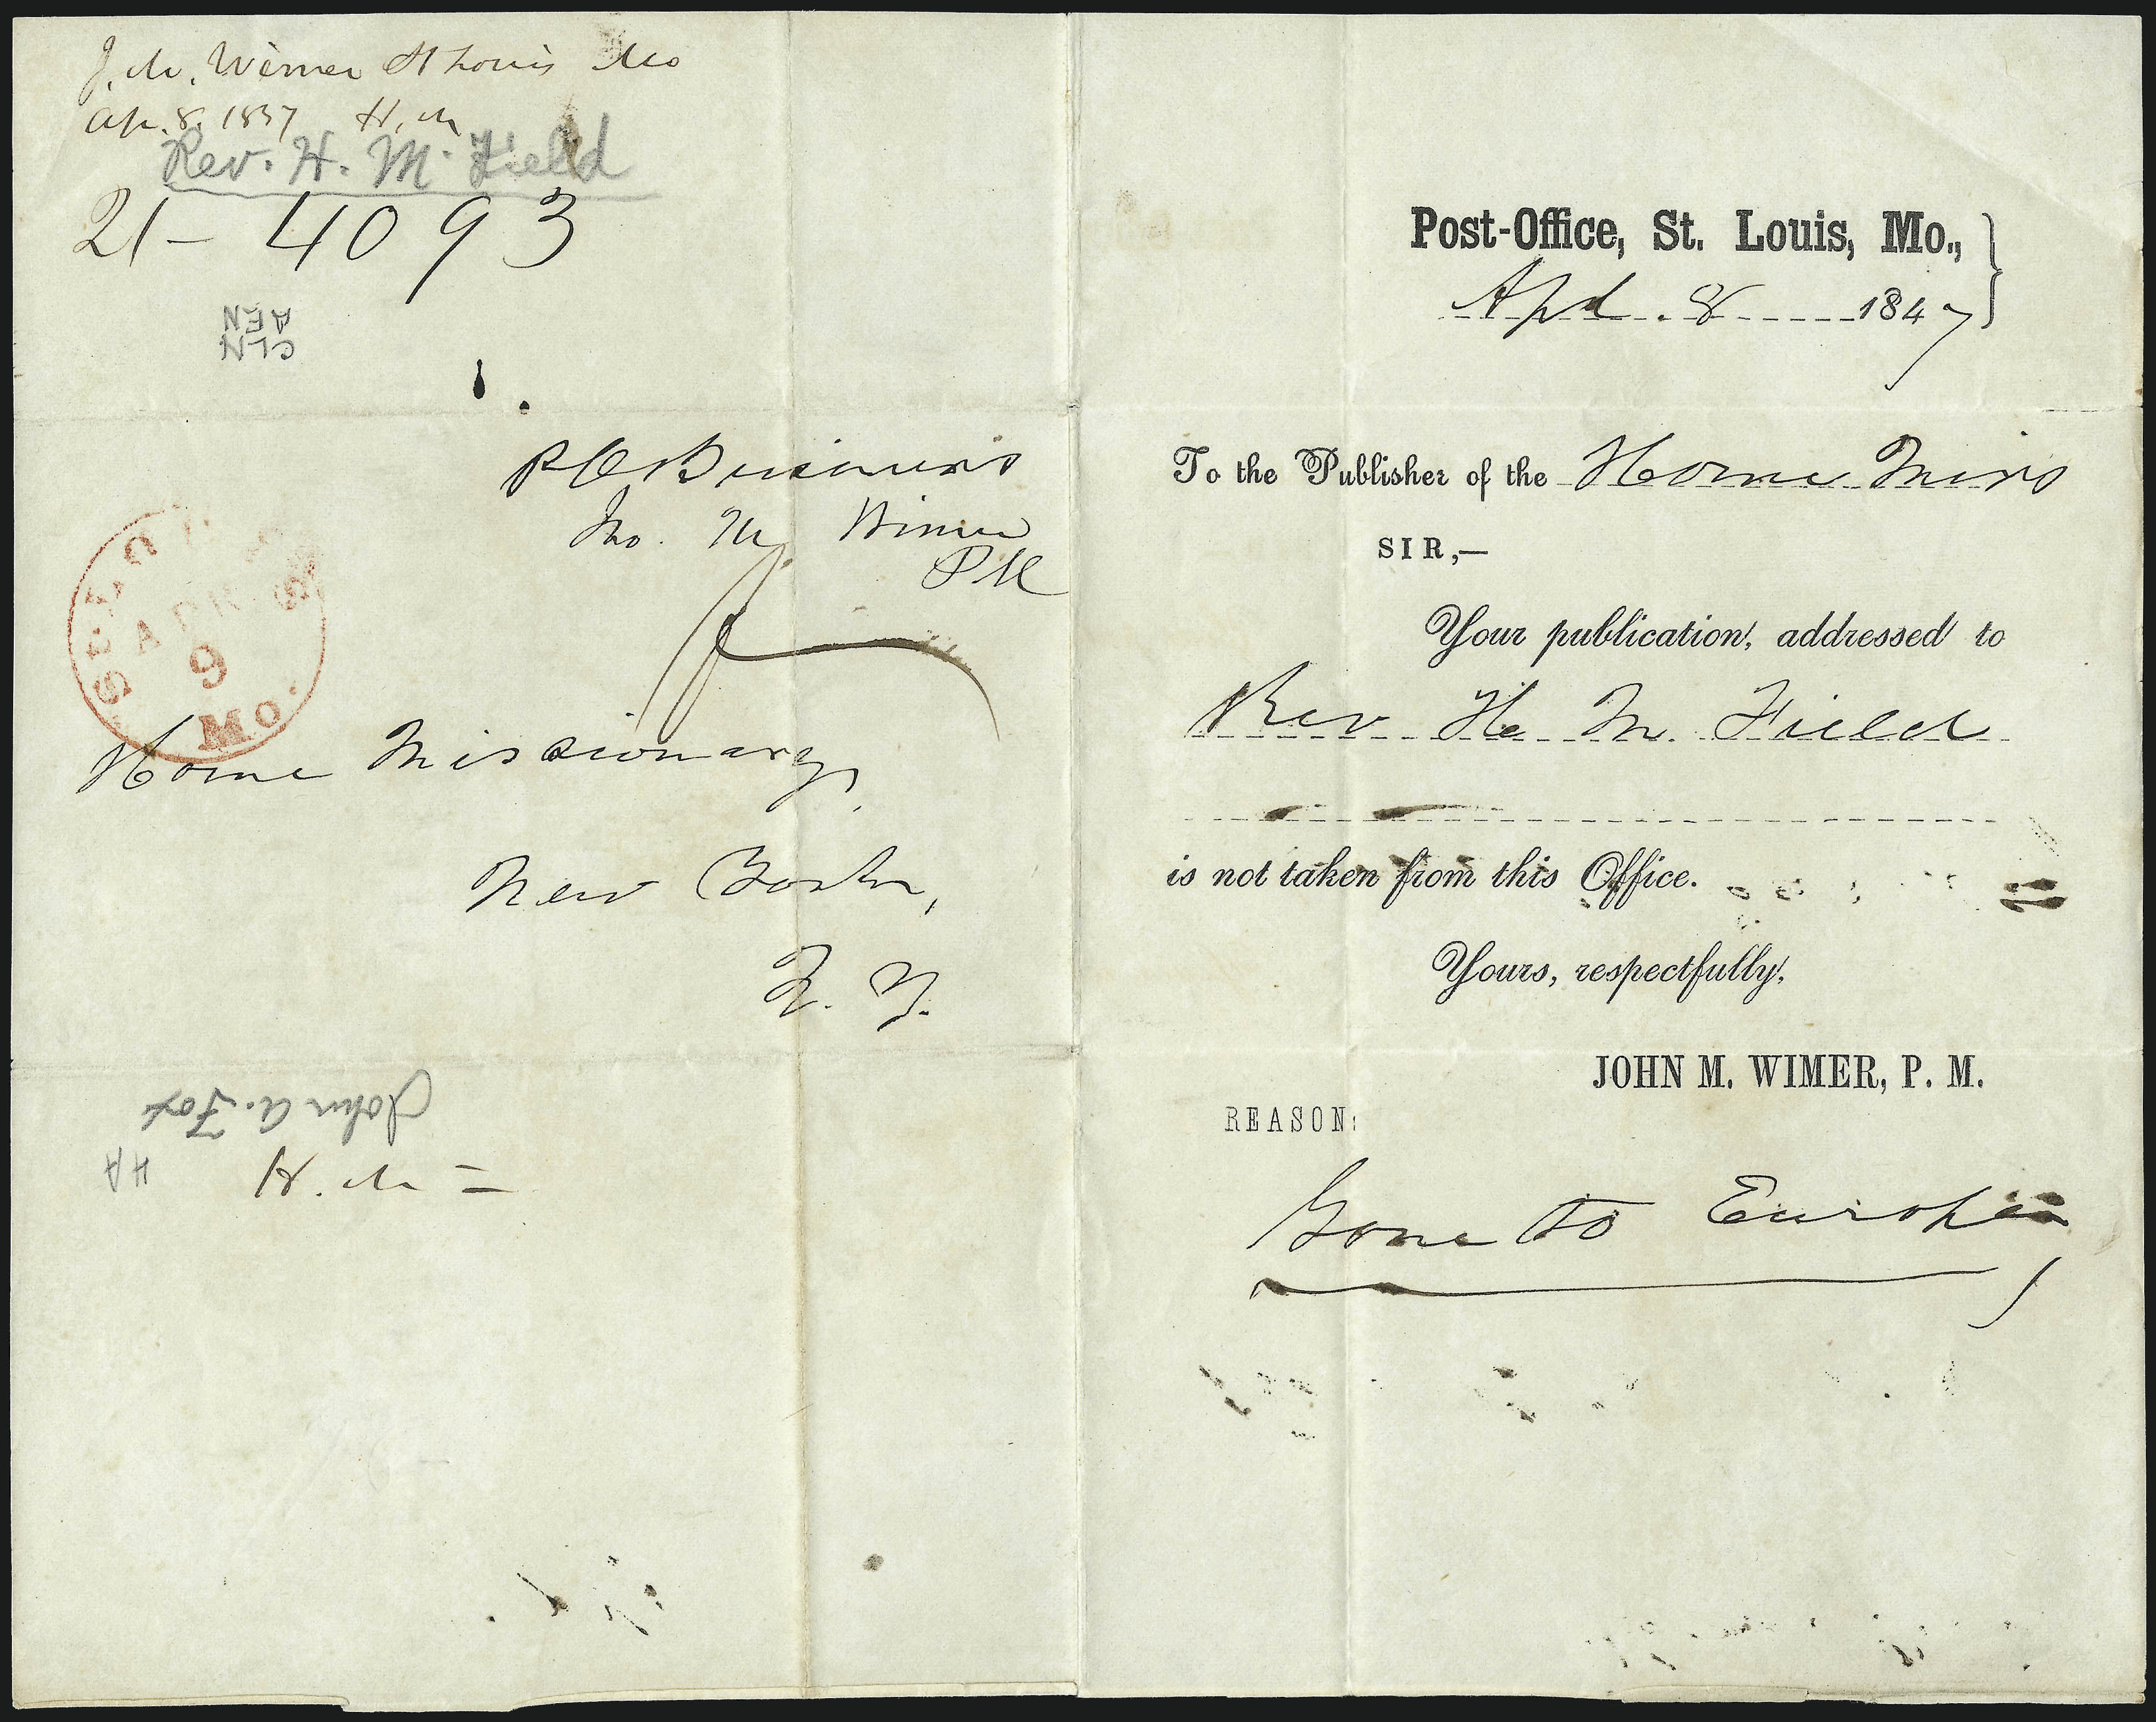 J. M. Wimer St Louis Mo
Ap. 8. 1847 H. M
Rev. H. M. Field
21- 4093
AEN
CLN
P O Business
Jno. M. Wimer
P M
ST. LOUIS
APR
9
Mo.
Home Missionary,
New York,
N. Y.
John A. Fox
HA
H. M =
Post-Office, St. Louis, Mo.,
Apl. 8 1847
To the Publisher of the Home Miss
SIR,—
Your publication, addressed to
Rev H. M. Field
is not taken from this Office.
Yours, respectfully,
JOHN M. WIMER, P. M.
REASON:
Gone to Europe